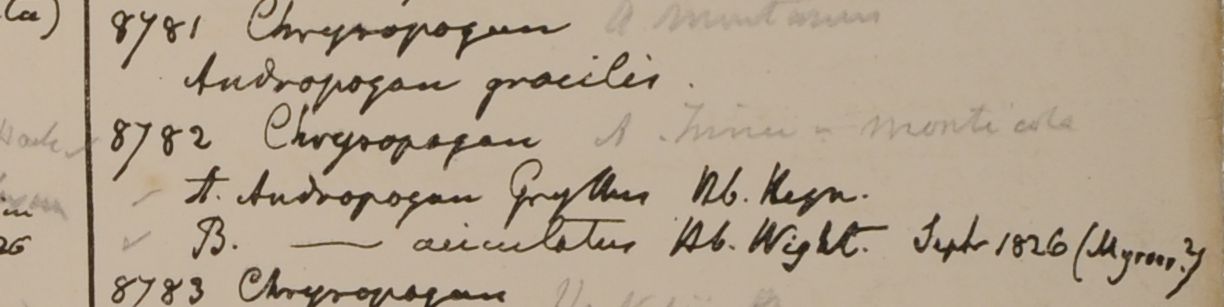 la)
8781 Chrysopogon A montanus
Andropogon gracilis.
8782 Chrysopogon A. Trinii = monticola
A. Andropogon Gryllus Hb. Heyn.
B. — aciculatus Hb. Wight. Septr 1826 (Mysore?)
26
8783 Chrysopogon